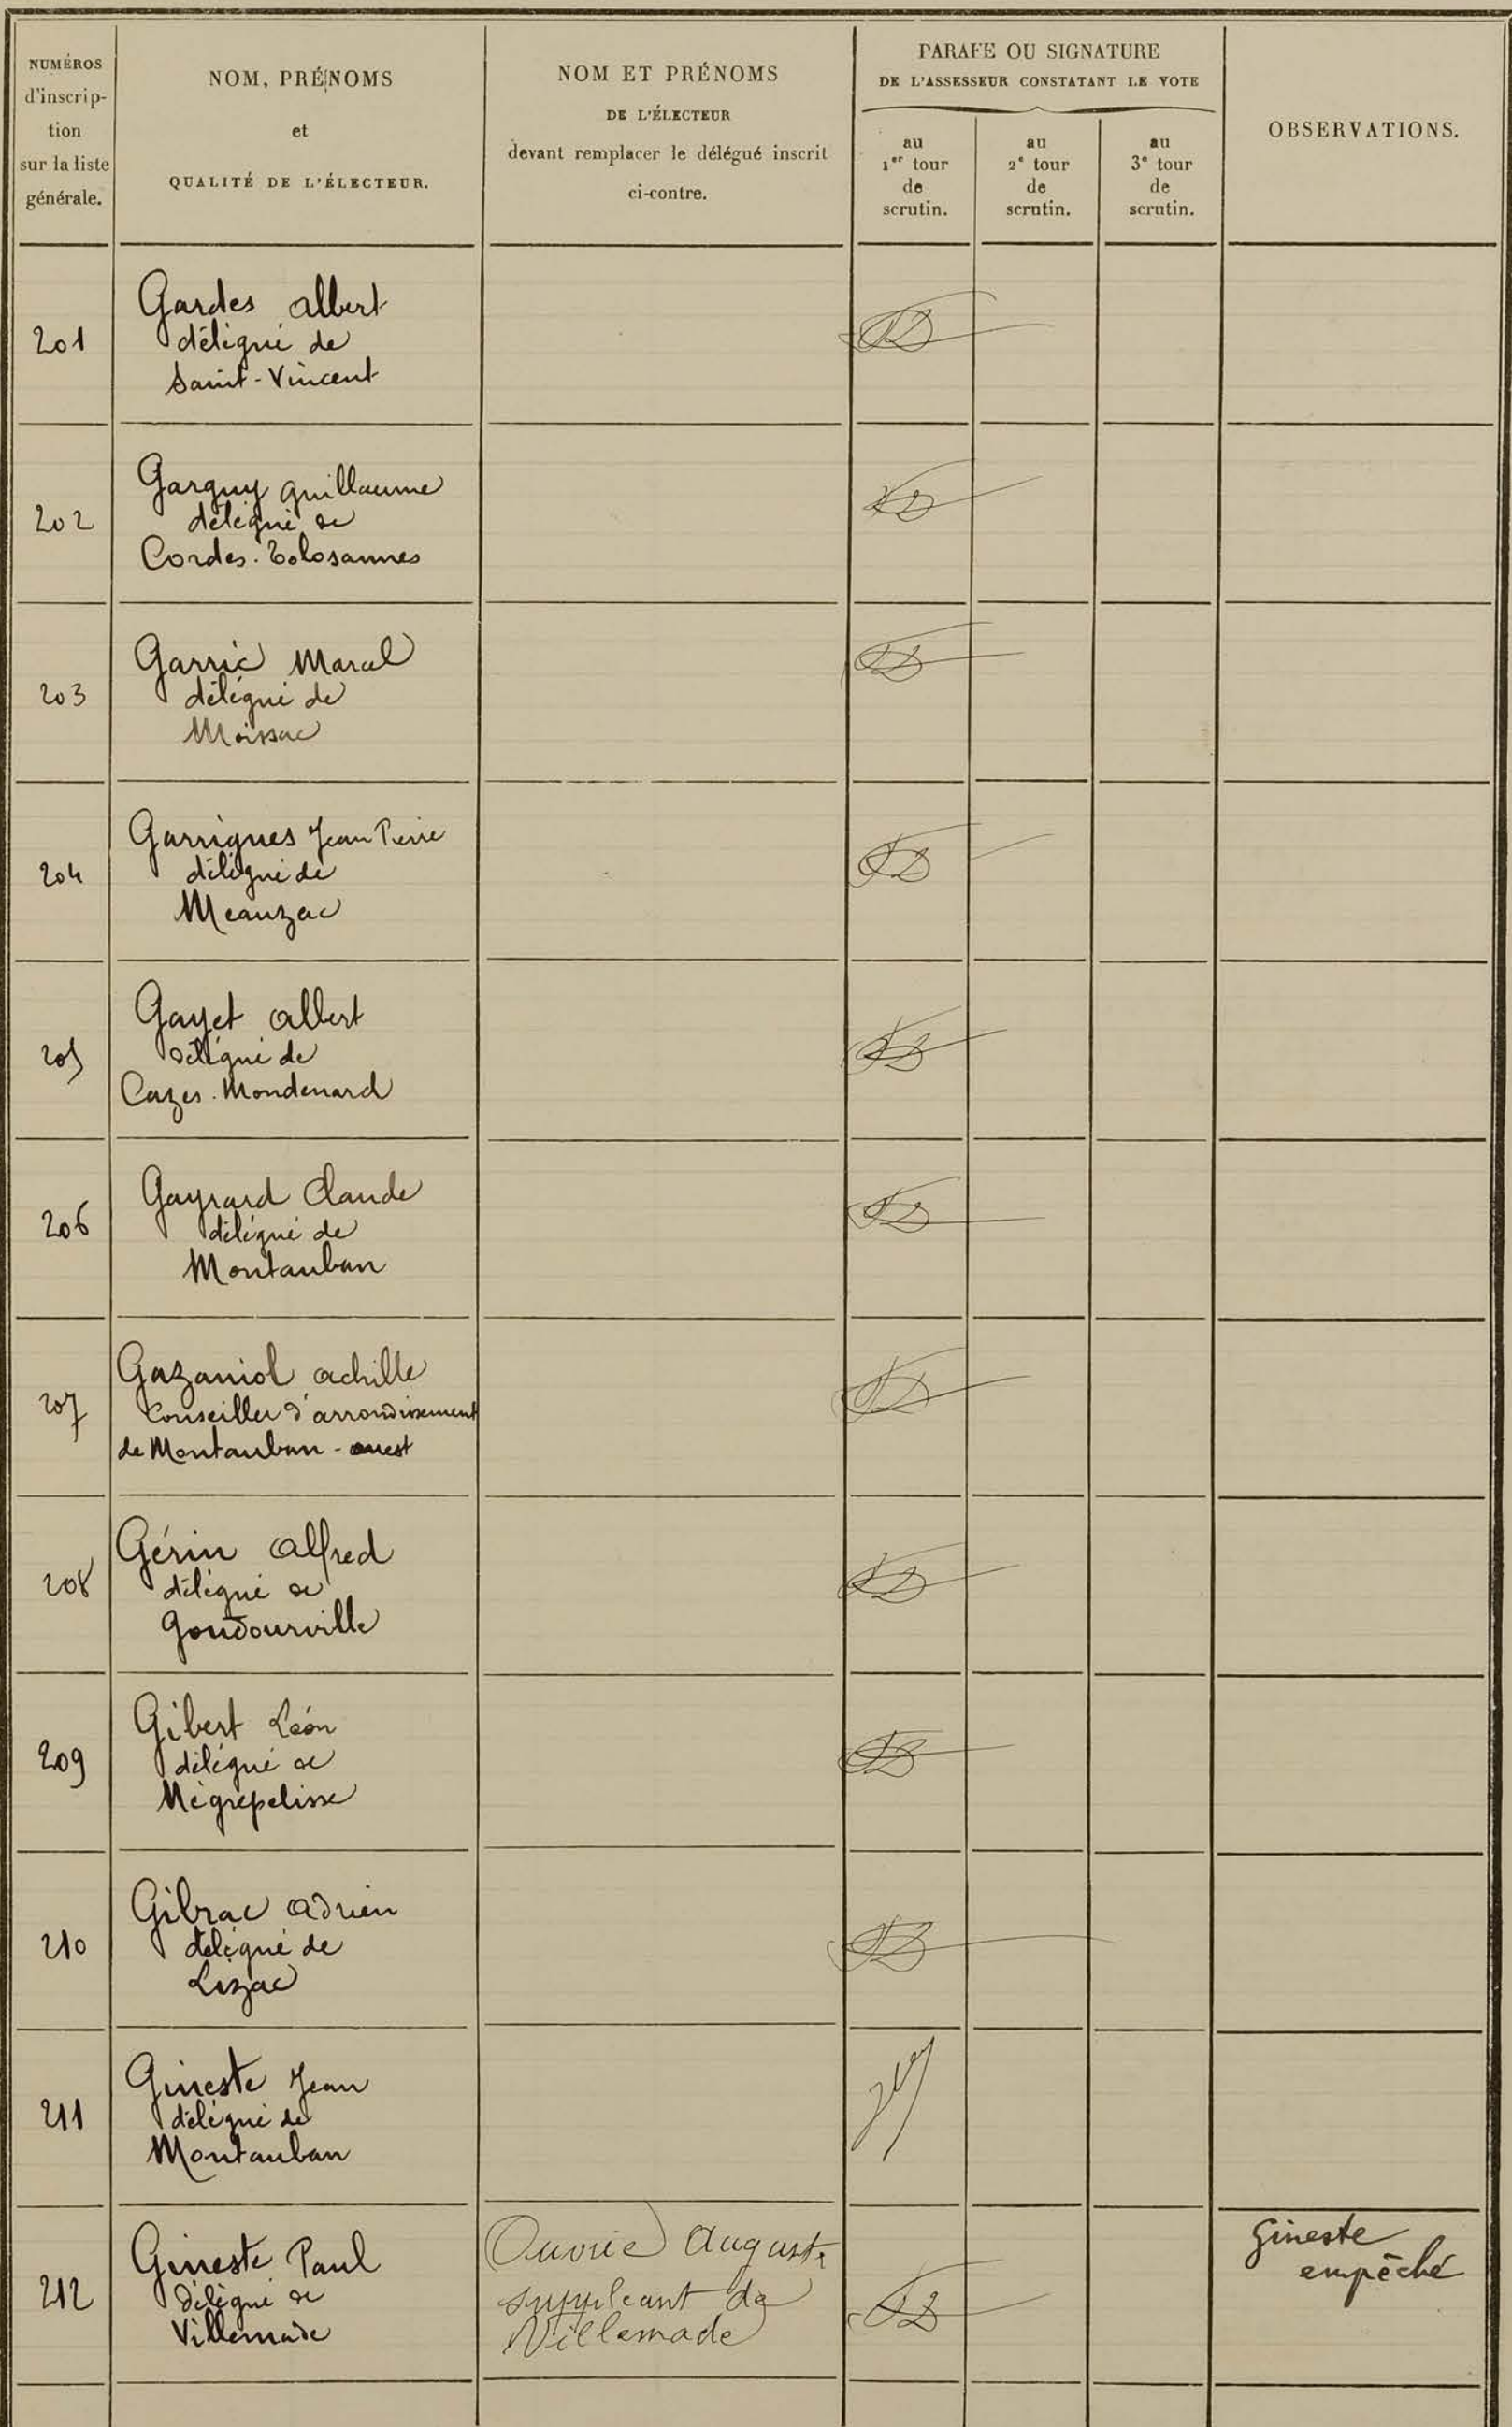 NUMÉROS
d'inscrip-
tion
sur la liste
générale.
NOM, PRÉNOMS
et
QUALITÉ DE L'ÉLECTEUR.
NOM ET PRÉNOMS
DE L'ÉLECTEUR
devant remplacer le délégué inscrit
ci-contre.
PARAFE OU SIGNATURE
DE L'ASSESSEUR CONSTATANT LE VOTE
au
1er tour
de
scrutin.
au
2e tour
de
scrutin.
au
3e tour
de
scrutin.
OBSERVATIONS.
201
Gardes Albert
délégué de
Saint-Vincent
202
Garguy Guillaume
délégué de
Cordes-Tolosannes
203
Garric Marcel
délégué de
Moissac
204
Garrigues Jean Pierre
délégué de
Meauzac
205
Gayet Albert
délégué de
Cazes-Mondenard
206
Gayrard Claude
délégué de
Montauban
207
Gazaniol Achille
Conseiller d'arrondissement
de Montauban-ouest
208
Gérin Alfred
délégué de
Goudourville
209
Gibert Léon
délégué de
Négrepelisse
210
Gibrac Adrien
délégué de
Lizac
211
Gineste Jean
délégué de
Montauban
212
Gineste Paul
délégué de
Villemade
Ouvrié Auguste
suppléant de
Villemade
Gineste
empêché